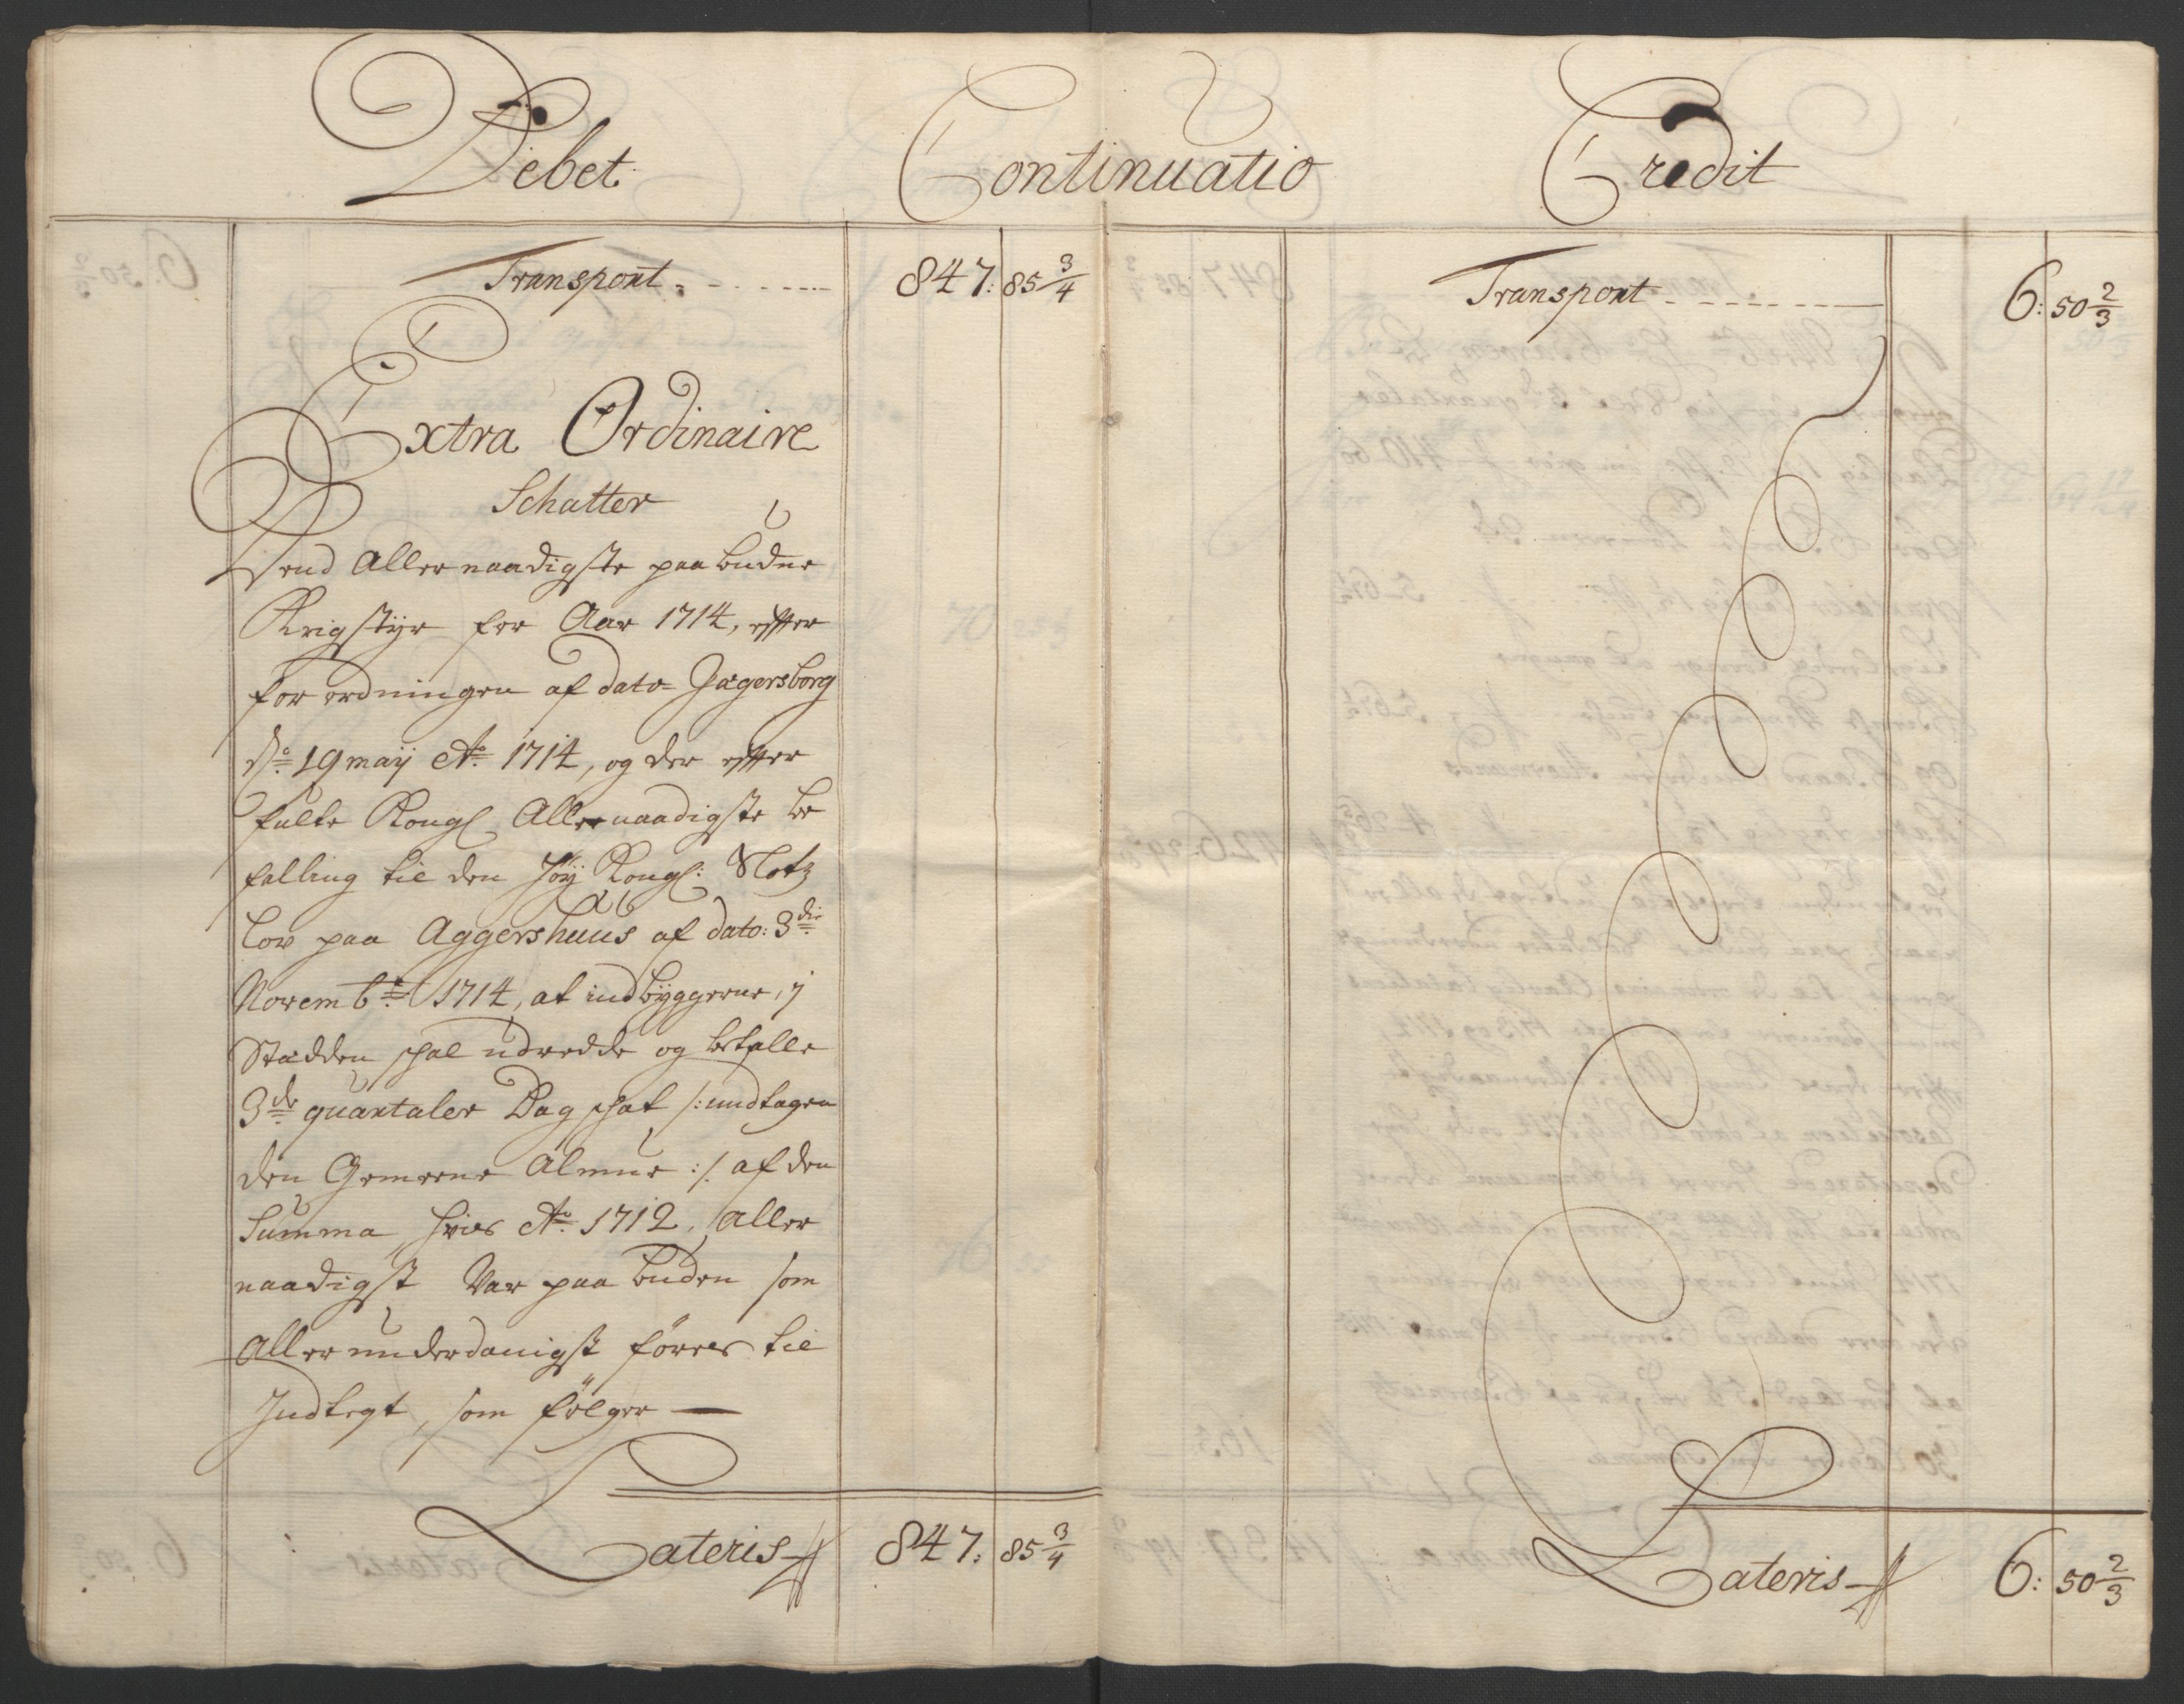 Debet Continuatio Credit
Transport 847: 85 3/4
Extra Ordinaire
Schatter
Dend Allernaadigste paabudne
Krigstÿr for Aar 1714, effter
forordningen af dato Jægersborg
d: 19 maÿ Ao 1714, og der effter
fulte Kongl Allernaadigste be
falling til den Höÿ Kongl: Slotz
lov paa Aggershuus af dato: 3die
Novembr 1714, at indbÿggerne, j
Stædden schal udredde og betalle
3de quartaler Dagschat /: undtagen
den Gemeene Almue :/ af den
Summa, hvies Ao 1712, Aller
naadigst Var paabuden som
Allerunderdanigst förres til
Indtegt, som fölger
Lateris 847: 85 3/4
Transport 6: 50 2/3
Lateris 6: 50 2/3